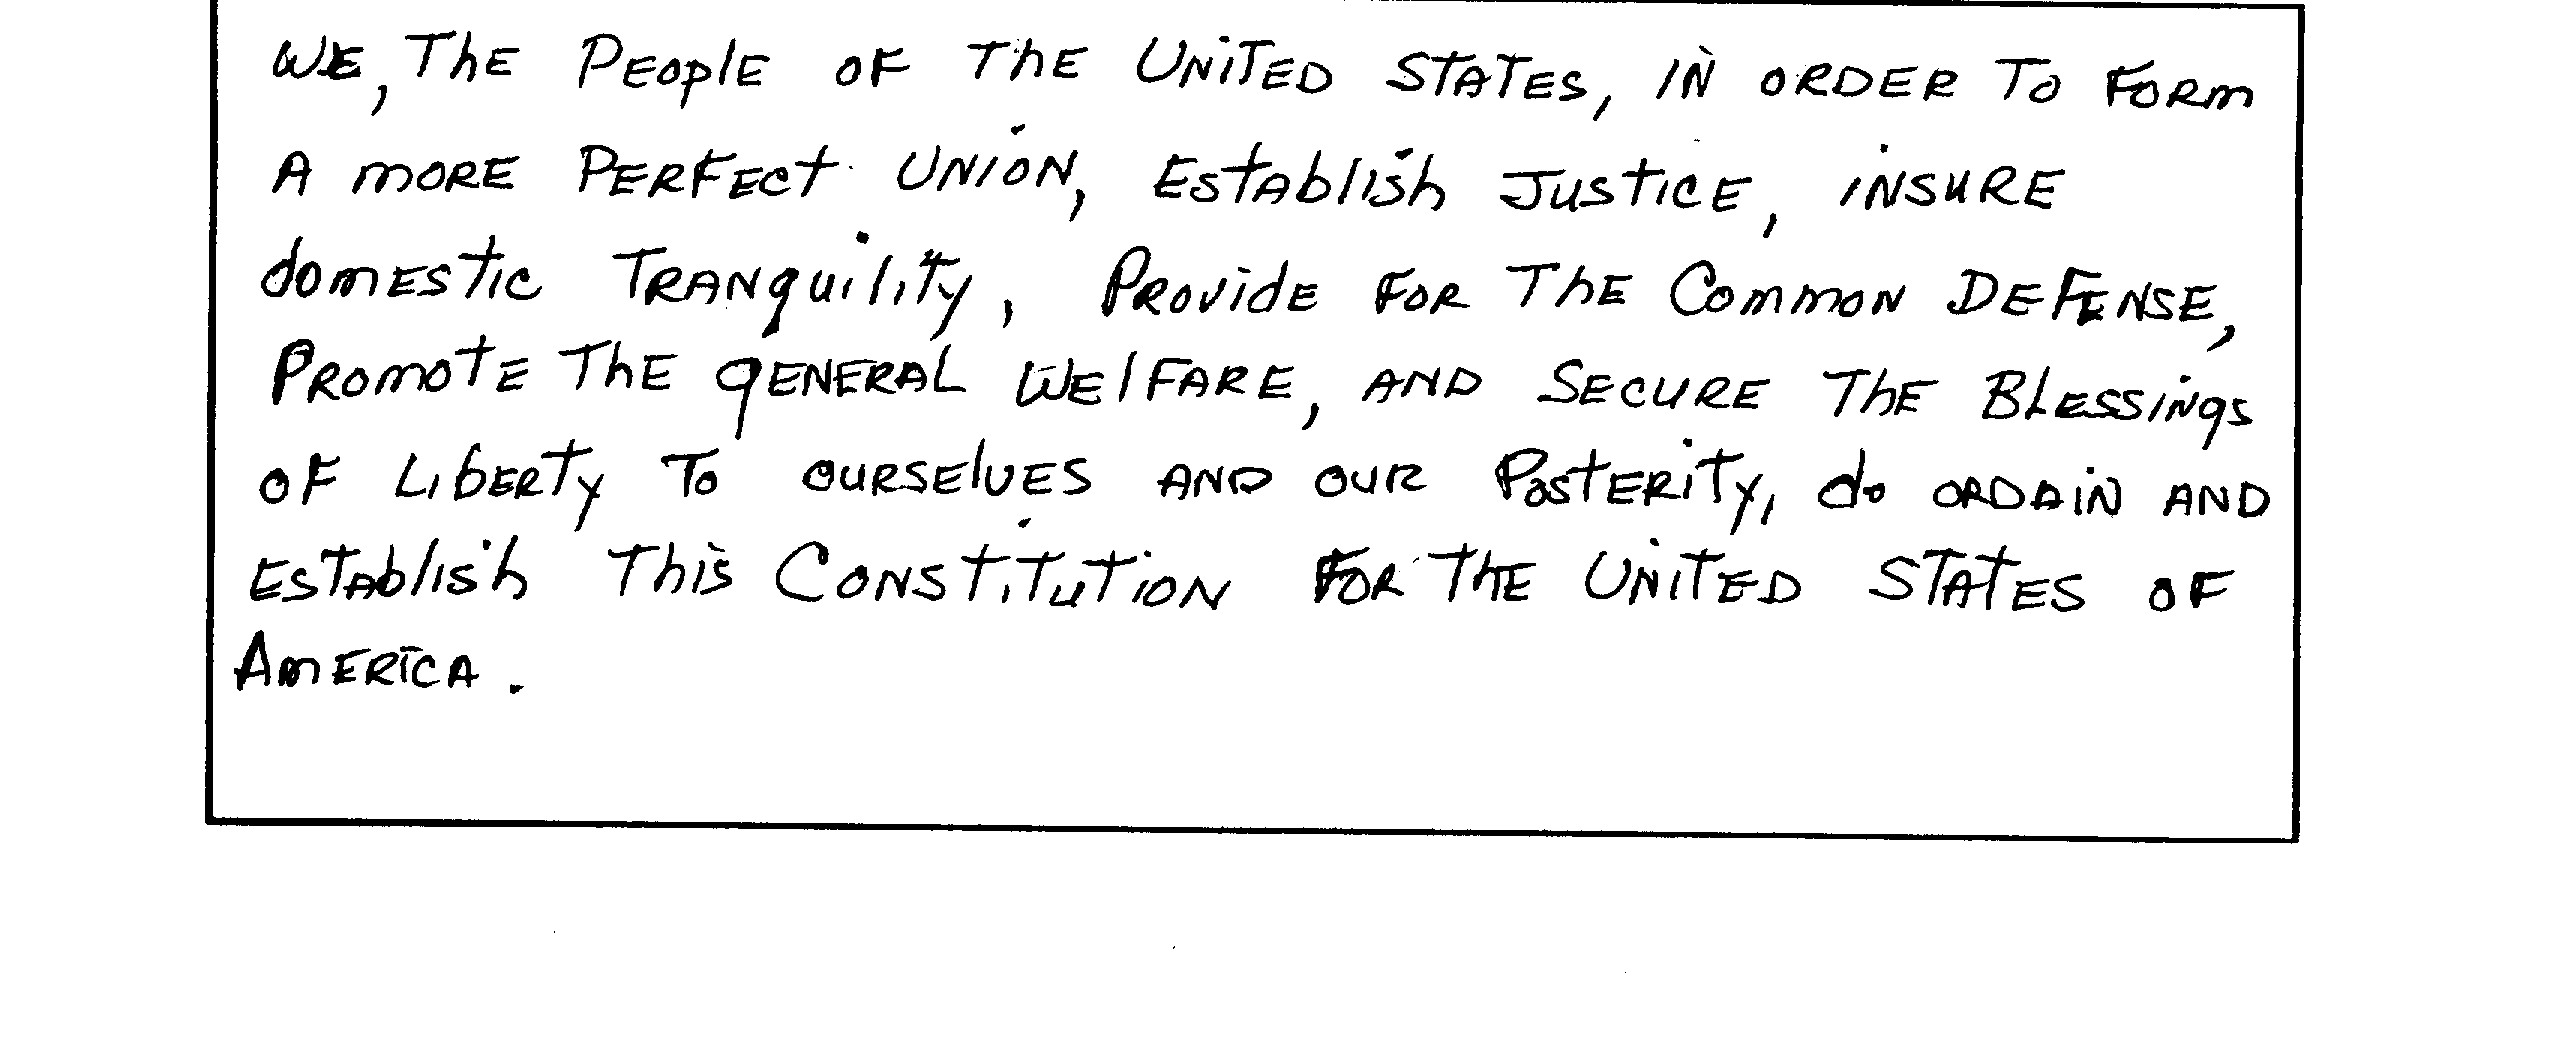 WE, ThE PEOplE OF ThE UNiTED STATES, IN ORDER TO FORm
A mORE PERFEct UNiON, EsTAblish JusticE, iNSuRE
domEstic TRANquility, PROvidE FOR ThE CommON DEFENSE,
PROmotE ThE gENERAL WElFARE, AND SECURE ThE BLESSiNgs
OF LibERTy To OURSElvES AND OUR PosTERiTy, do ORDAiN AND
EsTAblish This CONSTiTuTiON FOR ThE UNiTED STATES OF
AmERiCA.